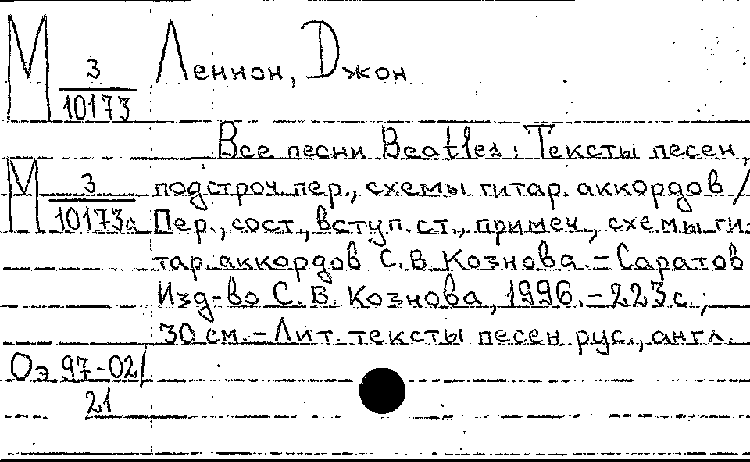 М 3/10173 Леннон, Джон
Все песни Beatles: Тексты песен,
М 3/10173а подстроч. пер., схемы гитар. аккордов /
Пер., сост., вступ. ст., примеч., схемы ги-
тар. аккордов С. В. Кознова. – Саратов
Изд-во С. В. Кознова, 1996. – 223 с.;
30 см. – Лит. тексты песен рус., англ.
Оэ 97-02/
21